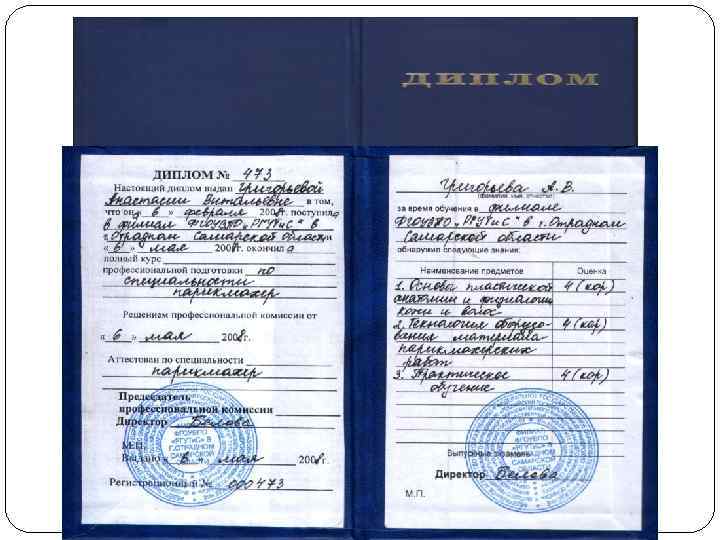 ДИПЛОМ
ДИПЛОМ № 473
Настоящий диплом выдан Григорьевой
Анастасии Витальевне в том,
что он а « 6 » февраля 2008г. поступила
в филиал ФГОУВПО „РГУТиС“ в
г. Отрадном Самарской области
« 6 » мая 2008г. окончил а
полный курс
профессиональной подготовки по
специальности
парикмахер
Решением профессиональной комиссии от
« 6 » мая 2008г.
Аттестован по специальности
парикмахер
Председатель
профессиональной комиссии
Директор Белова
М.П.
Выдано « 6 » мая 2008г.
Регистрационный № 000473
Григорьева А. В.
(фамилия, имя, отчество)
за время обучения в филиале
ФГОУВПО „РГУТиС“ в г. Отрадном
Самарской области
обнаружил следующие знания:
Наименование предметов Оценка
1. Основы пластической 4 (хор)
анатомии и физиологии
кожи и волос
2. Технология оборудо- 4 (хор)
вания материала
парикмахерских
работ
3. Практическое 4 (хор)
обучение
Выпускные экзамены
Директор Белова
М.П.